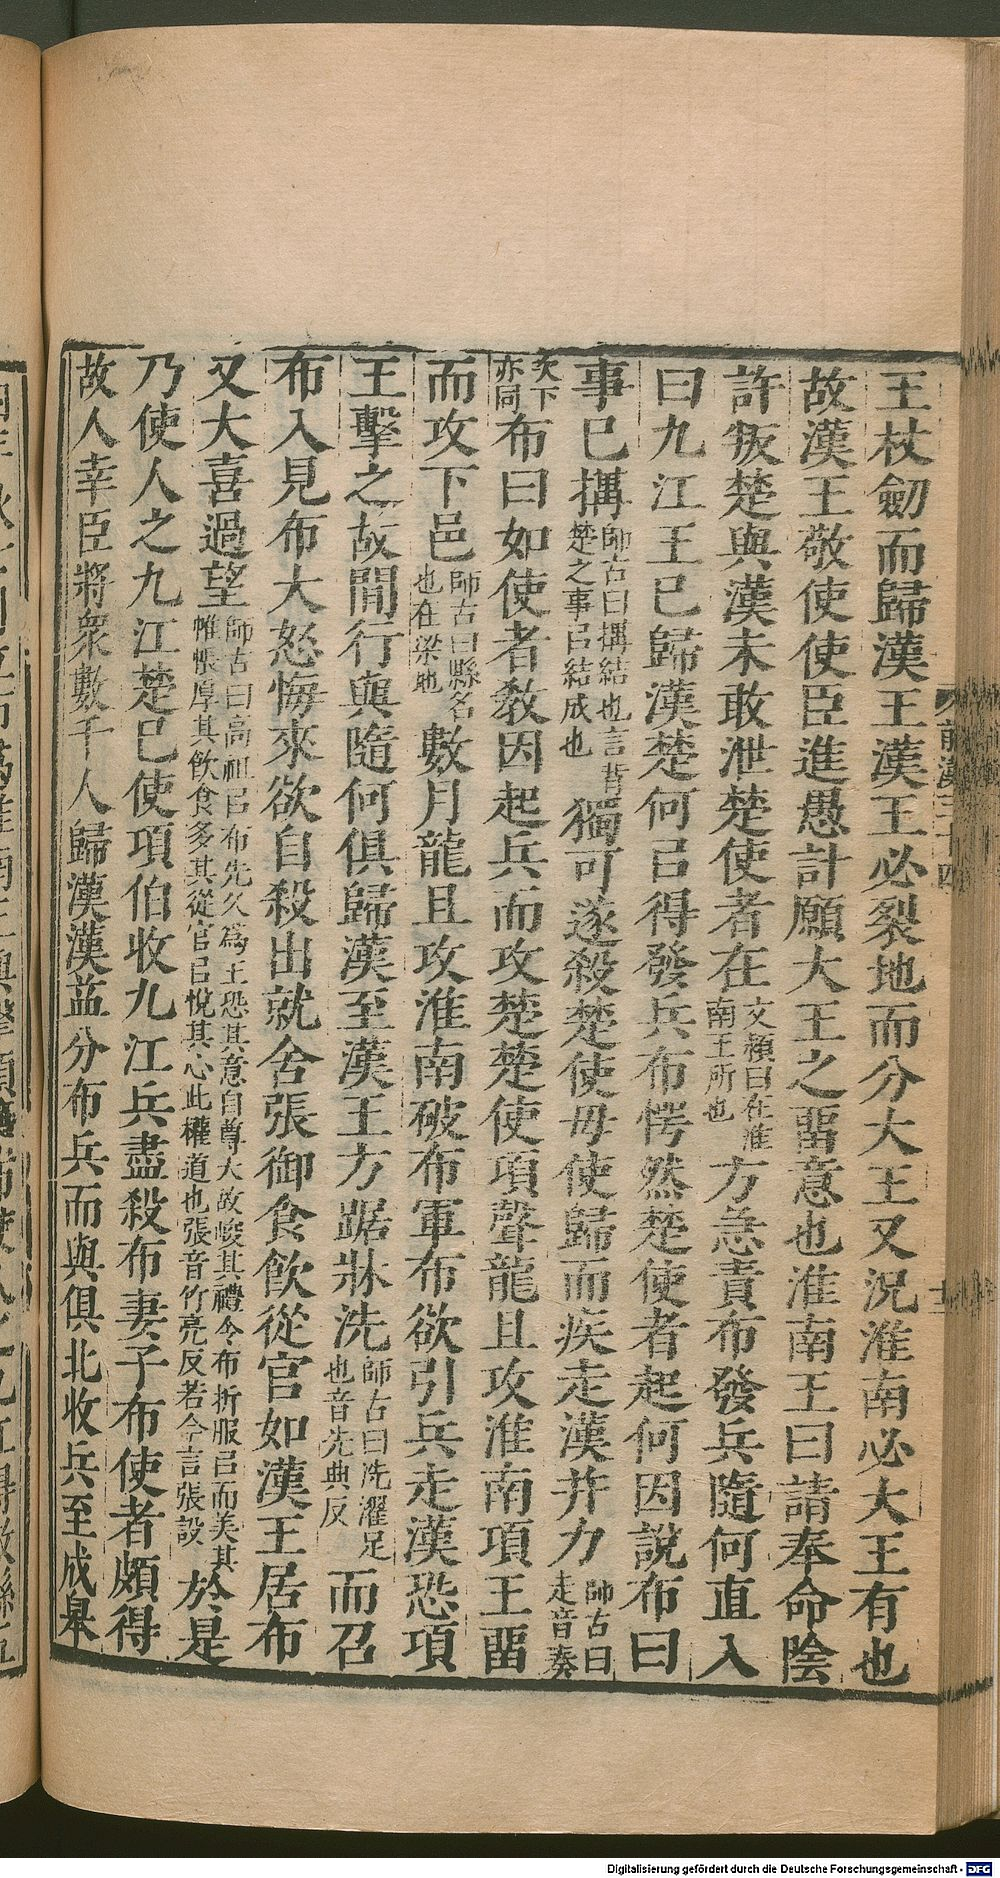 王杖劒而歸漢王漢王必裂地而分大王又況淮南必大王有也
故漢王敬使使臣進愚計願大王之畱意也淮南王曰請奉命陰
許叛楚與漢未敢泄楚使者在文穎曰在淮南王所也方急責布發兵隨何直入
曰九江王已歸漢楚何㠯得發兵布愕然楚使者起何因說布曰
事已搆師古曰搆結也言背楚之事㠯結成也獨可遂殺楚使毋使歸而疾走漢并力師古曰走音奏
次下亦同布曰如使者教因起兵而攻楚楚使項聲龍且攻淮南項王畱
而攻下邑師古曰縣名也在梁地數月龍且攻淮南破布軍布欲引兵走漢恐項
王擊之故閒行與隨何俱歸漢至漢王方踞牀洗師古曰洗濯足也音先典反而召
布入見布大怒悔來欲自殺出就舍張御食飲從官如漢王居布
又大喜過望師古曰高祖㠯布先久爲王恐其意自尊大故峻其禮令布折服㠯而美其帷帳厚其飲食多其從官㠯悅其心此權道也張音竹亮反若今言張設於是
乃使人之九江楚已使項伯收九江兵盡殺布妻子布使者頗得
故人幸臣將衆數千人歸漢漢益分布兵而與俱北收兵至成皋
前漢三十四
十三
Digitalisierung gefördert durch die Deutsche Forschungsgemeinschaft - DFG